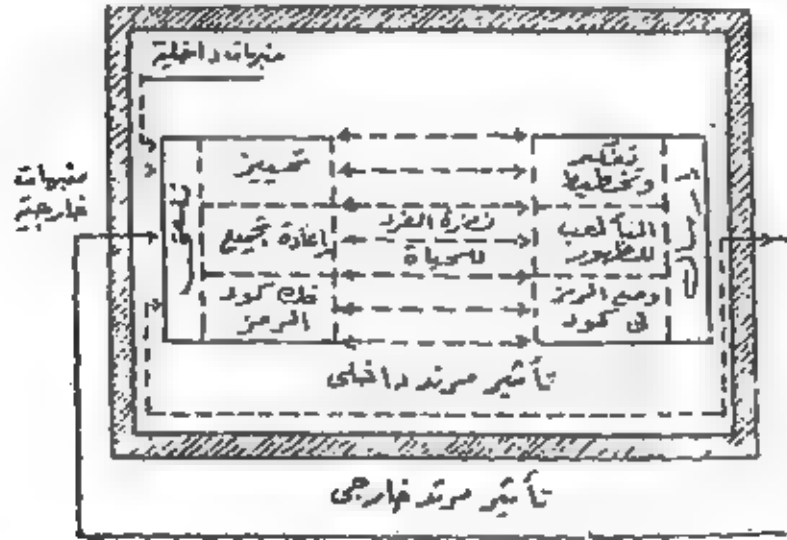 منبهات داخلية
منبهات
خارجية
تمييز
إعادة تجميع
فك كود
الرمز
نظرة الفرد
للحياة
تفكير
وتخطيط
التأهب
للظهور
وضع الرمز
فى كود
تأثير مرتد داخلى
تأثير مرتد خارجى